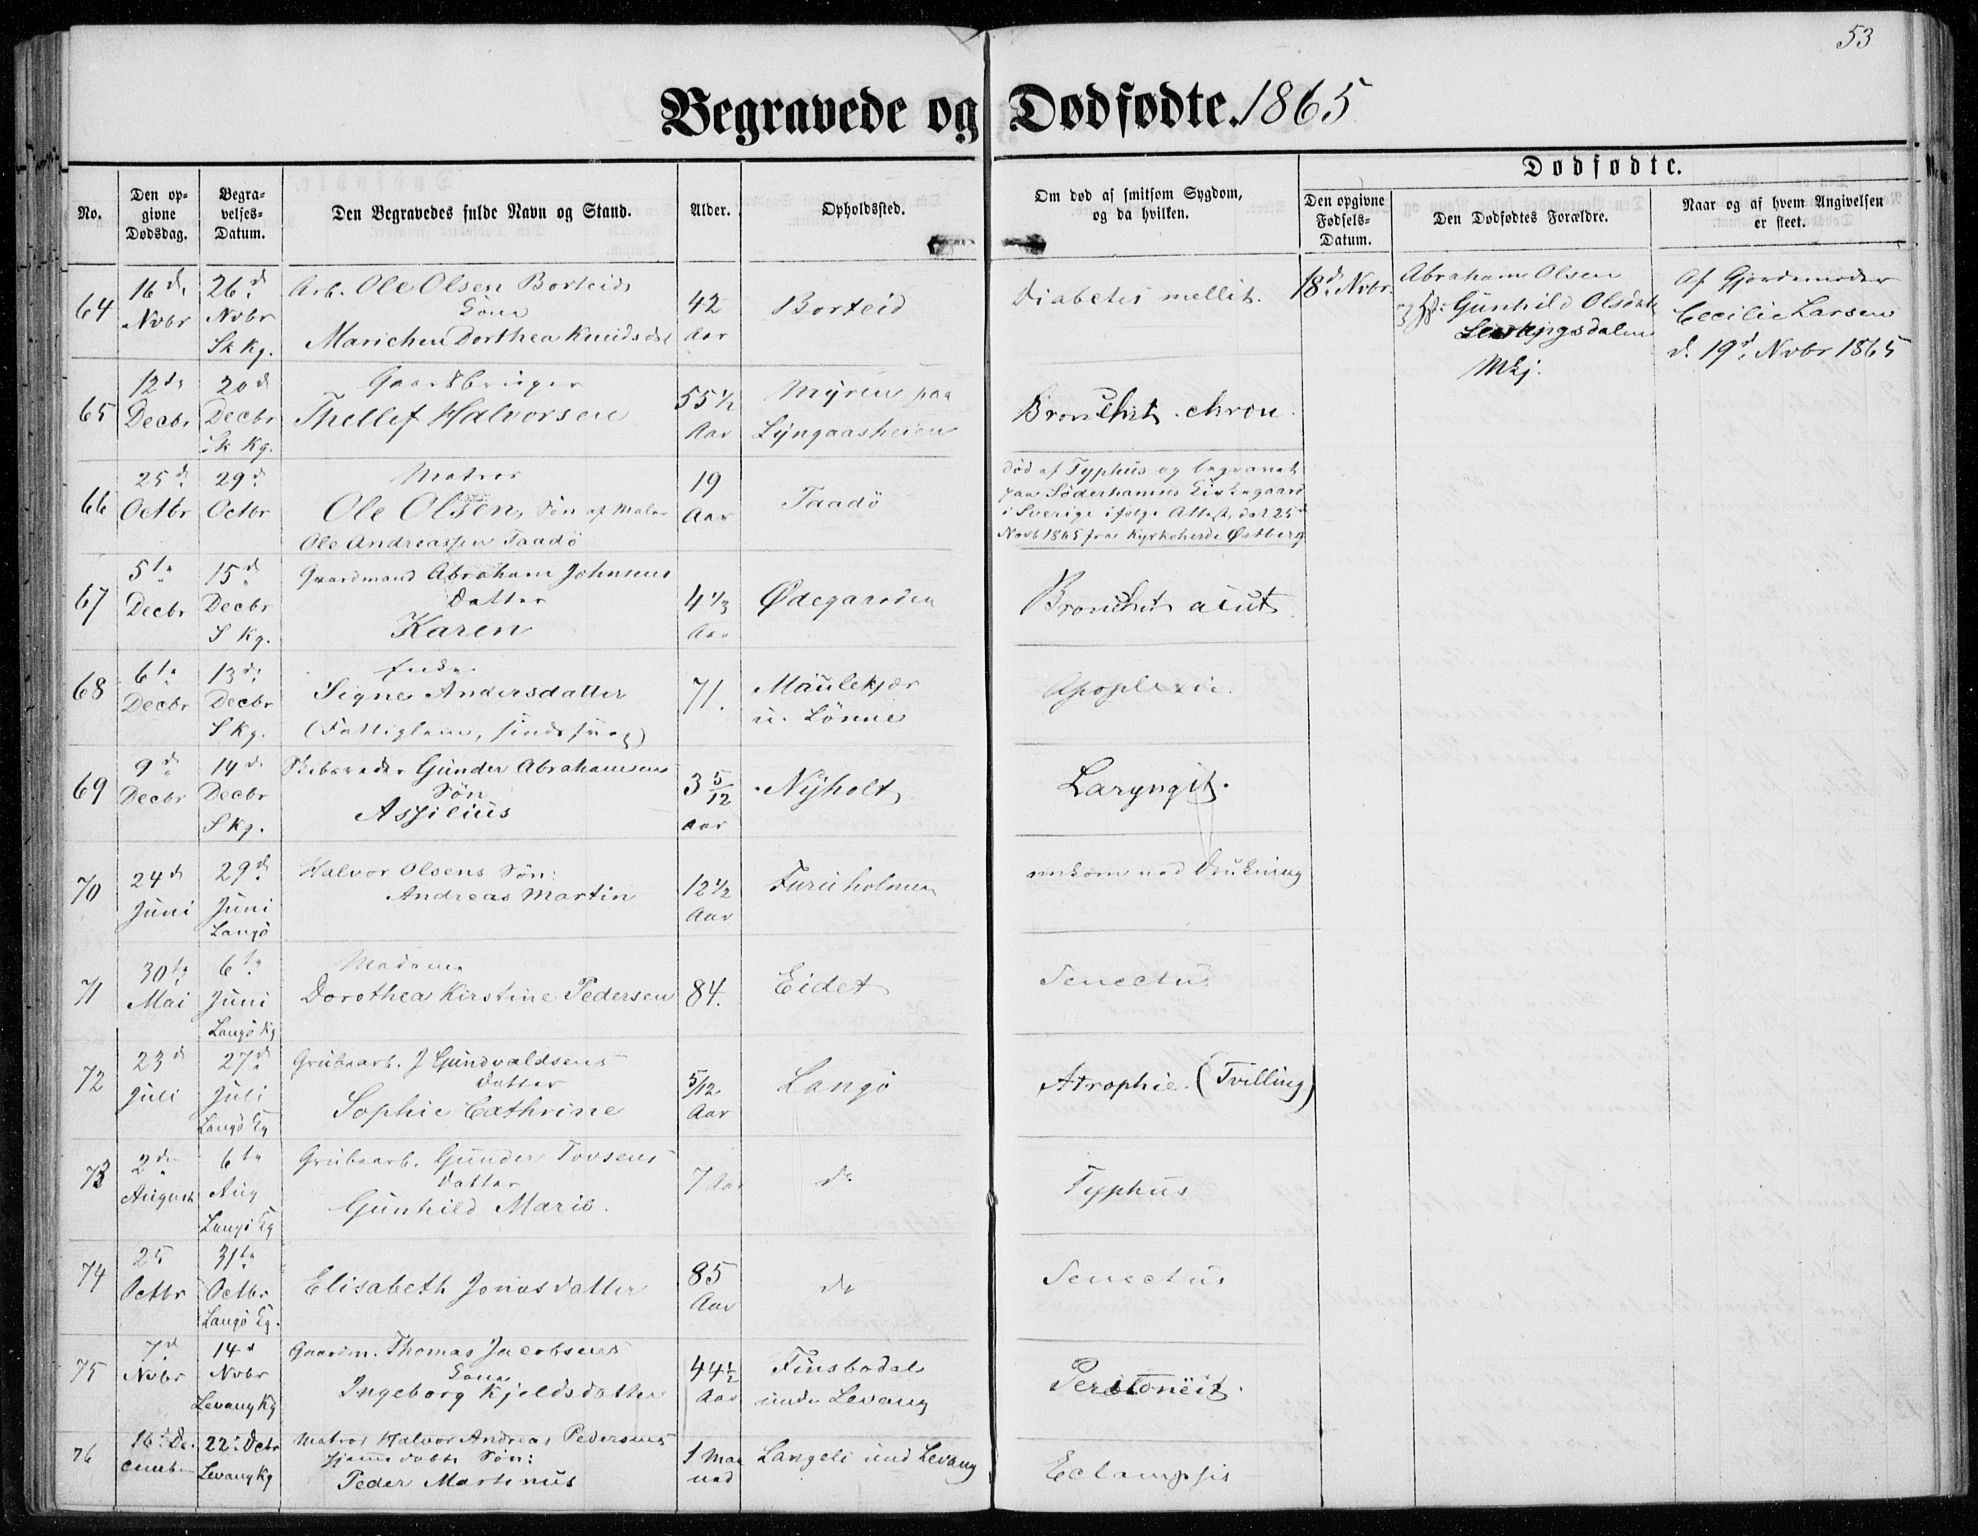 53
Begravede og Dødfødte. 1865
Dødfødte.
No.
Den opgivne Dødsdag.
Begravelses-Datum.
Den Begravedes fulde Navn og Stand.
Alder.
Opholdssted.
Om død af smitsom Sygdom, og da hvilken.
Den opgivne Fødsels-Datum.
Den Dødfødtes Forældre.
Naar og af hvem Angivelsen er skeet.
64
16d. Nvbr
26d. Nvbr Sk Kg.
Arb. Ole Olsen Borteids
Kone
Marichen Dorthea Knudsdat
42 Aar
Borteid
Diabetes mellit.
18d. Nvbr.
Abraham Olsen
og Gunhild Olsdatt
Mkj.
Af Gjordemoder
Cecilie Larsen
d. 19d. Nvbr 1865
65
12de Decbr
20d Decbr Sk Kg.
Gaardbruger
Thellef Halvorsen
55 1/2 Aar
Myren paa
Lyngaasheien
Bronchit. chron.
66
25d. Octbr
29d. Octbr
Matros
Ole Olsen, Søn af Mator
Ole Andreassen Taadö
19 Aar
Taadö
død af Typhus og begravet
paa Söderhamns Kirkegaard
i Sverige ifølge Attest, dat 25d
Novb 1865 fra Kyrkoherde Østberg
67
5te Decbr
15d Decbr S Kg.
Gaardmand Abraham Johnsens
Datter
Karen
4 1/3 Aar
Ødegaarden
Bronchit acut.
68
6te Decbr
13de Decbr S Kg.
Enke
Signe Andersdatter
(Fattiglem, sindssvag)
71.
Maulekjær
u. Lönne
Apoplexie.
69
9de Decbr
14d. Decbr S Kg.
Skibsreder Gunder Abrahamsens
Søn
Assilius
3 5/12 Aar
Nyholt
Laryngit.
70
24d Juni
29d. Juni Langö
Halvor Olsens Søn:
Andreas Martin
12 1/2 Aar
Furuholmen
omkom ved Drukning
71
30te Mai
6te Juni Langö Kg
Madame
Dorothea Kirstine Pedersen
84.
Eidet
Senectus
72
23d Juli
27d. Juli Langö Kg
Grubearb. J Gundvaldsens
Datter
Sophie Cathrine
5/12 Aar
Langö
Atrophie. (Tvilling)
73
2den August
6te Aug Langö Kg
Grubearb. Gunder Tovsens
Datter
Gunhild Marie.
7 Aar
do
Typhus
74
25 Octbr
31te Octbr Langö Kg.
Elisabeth Jonasdatter
85 Aar
do
Senectus
75
7d Nvbr
14d Nvbr Levang Kg
Gaardm. Thomas Jacobsens
Kone
Ingeborg Kjeldsdatter
44 1/2 Aar
Finsbodal
under Levang
Peritoneit.
76
16d. December
22d Decbr Levang Kg
Matros Halvor Andreas Pedersens
hjemmedøbte Søn:
Peder Martinus
1 Maaned
Langeli und Levang
Eclampsis